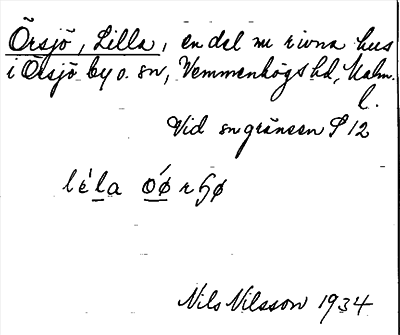 Örsjö, Lilla, en del nu rivna hus
i Örsjö by o. sn, Vemmenhögs hd, Malm.
l.
Vid sngränsen S 12
léla óørɧø
Nils Nilsson 1934